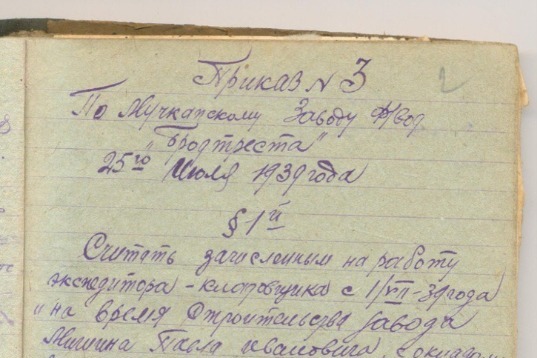 Приказ N 3
2
По Мучкапскому Заводу
"Бродтреста"
25го Июля 1939 года
§ 1й
Считать зачисленным на работу
экспедитора - кладовщика с 1/VII-39 года
и на время Строительства Завода
Мишина Павла Ивановича, с окладом